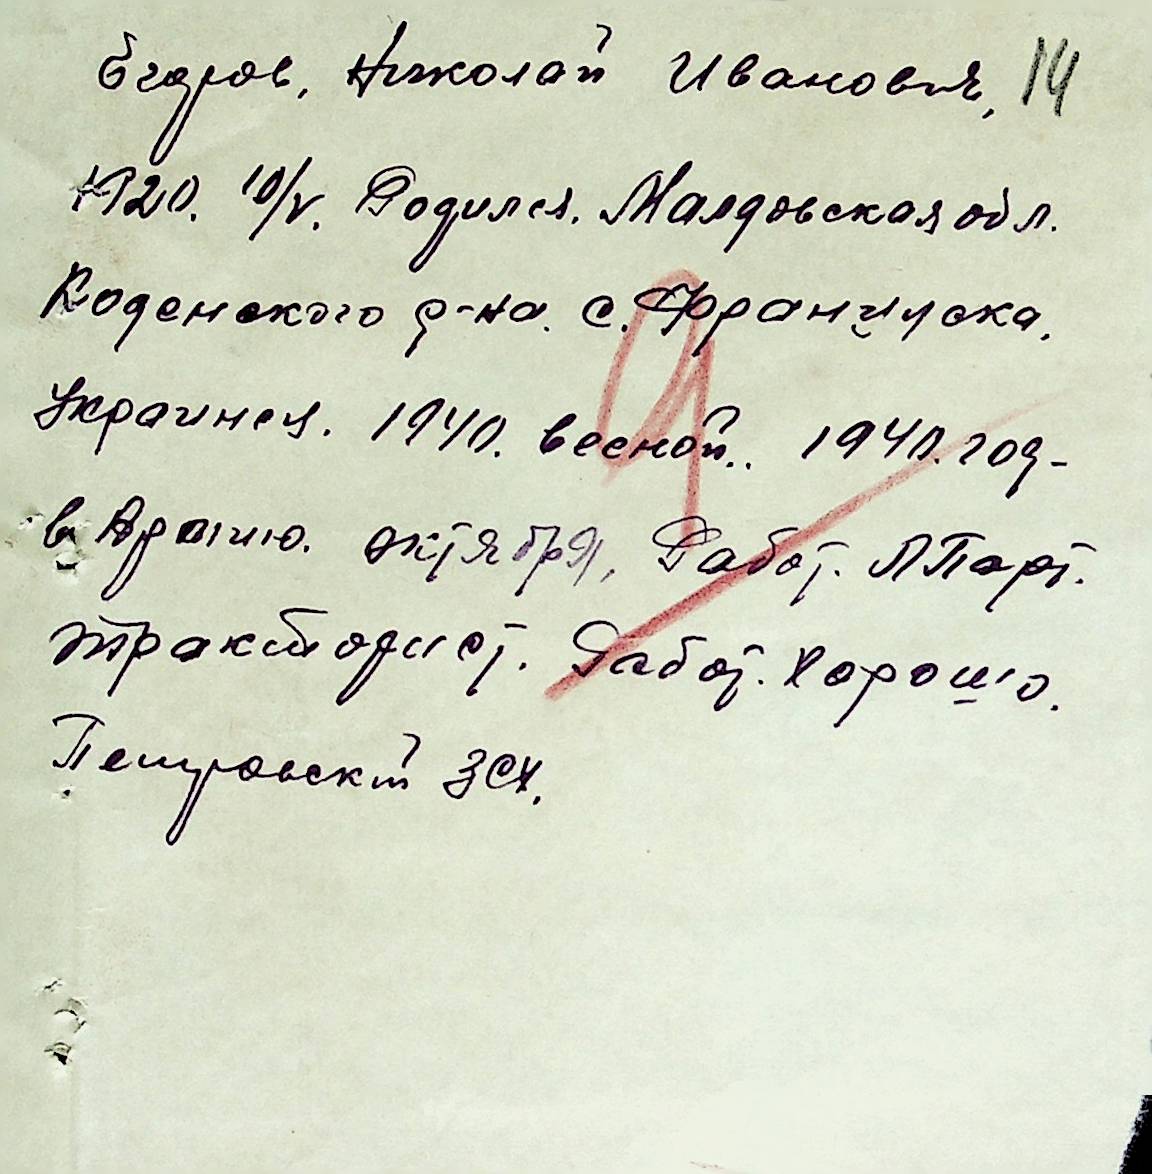 Егоров, Николай Иванович, 14
1920. 10/V. Родился. Малдовская обл.
Коденского р-на. с. Французка.
Украинец. 1940. весной.. 1940. год-
в Армию. октября, Работ. П Парт.
тракторист. Работ. Хорошо.
Петровский ЗСК.